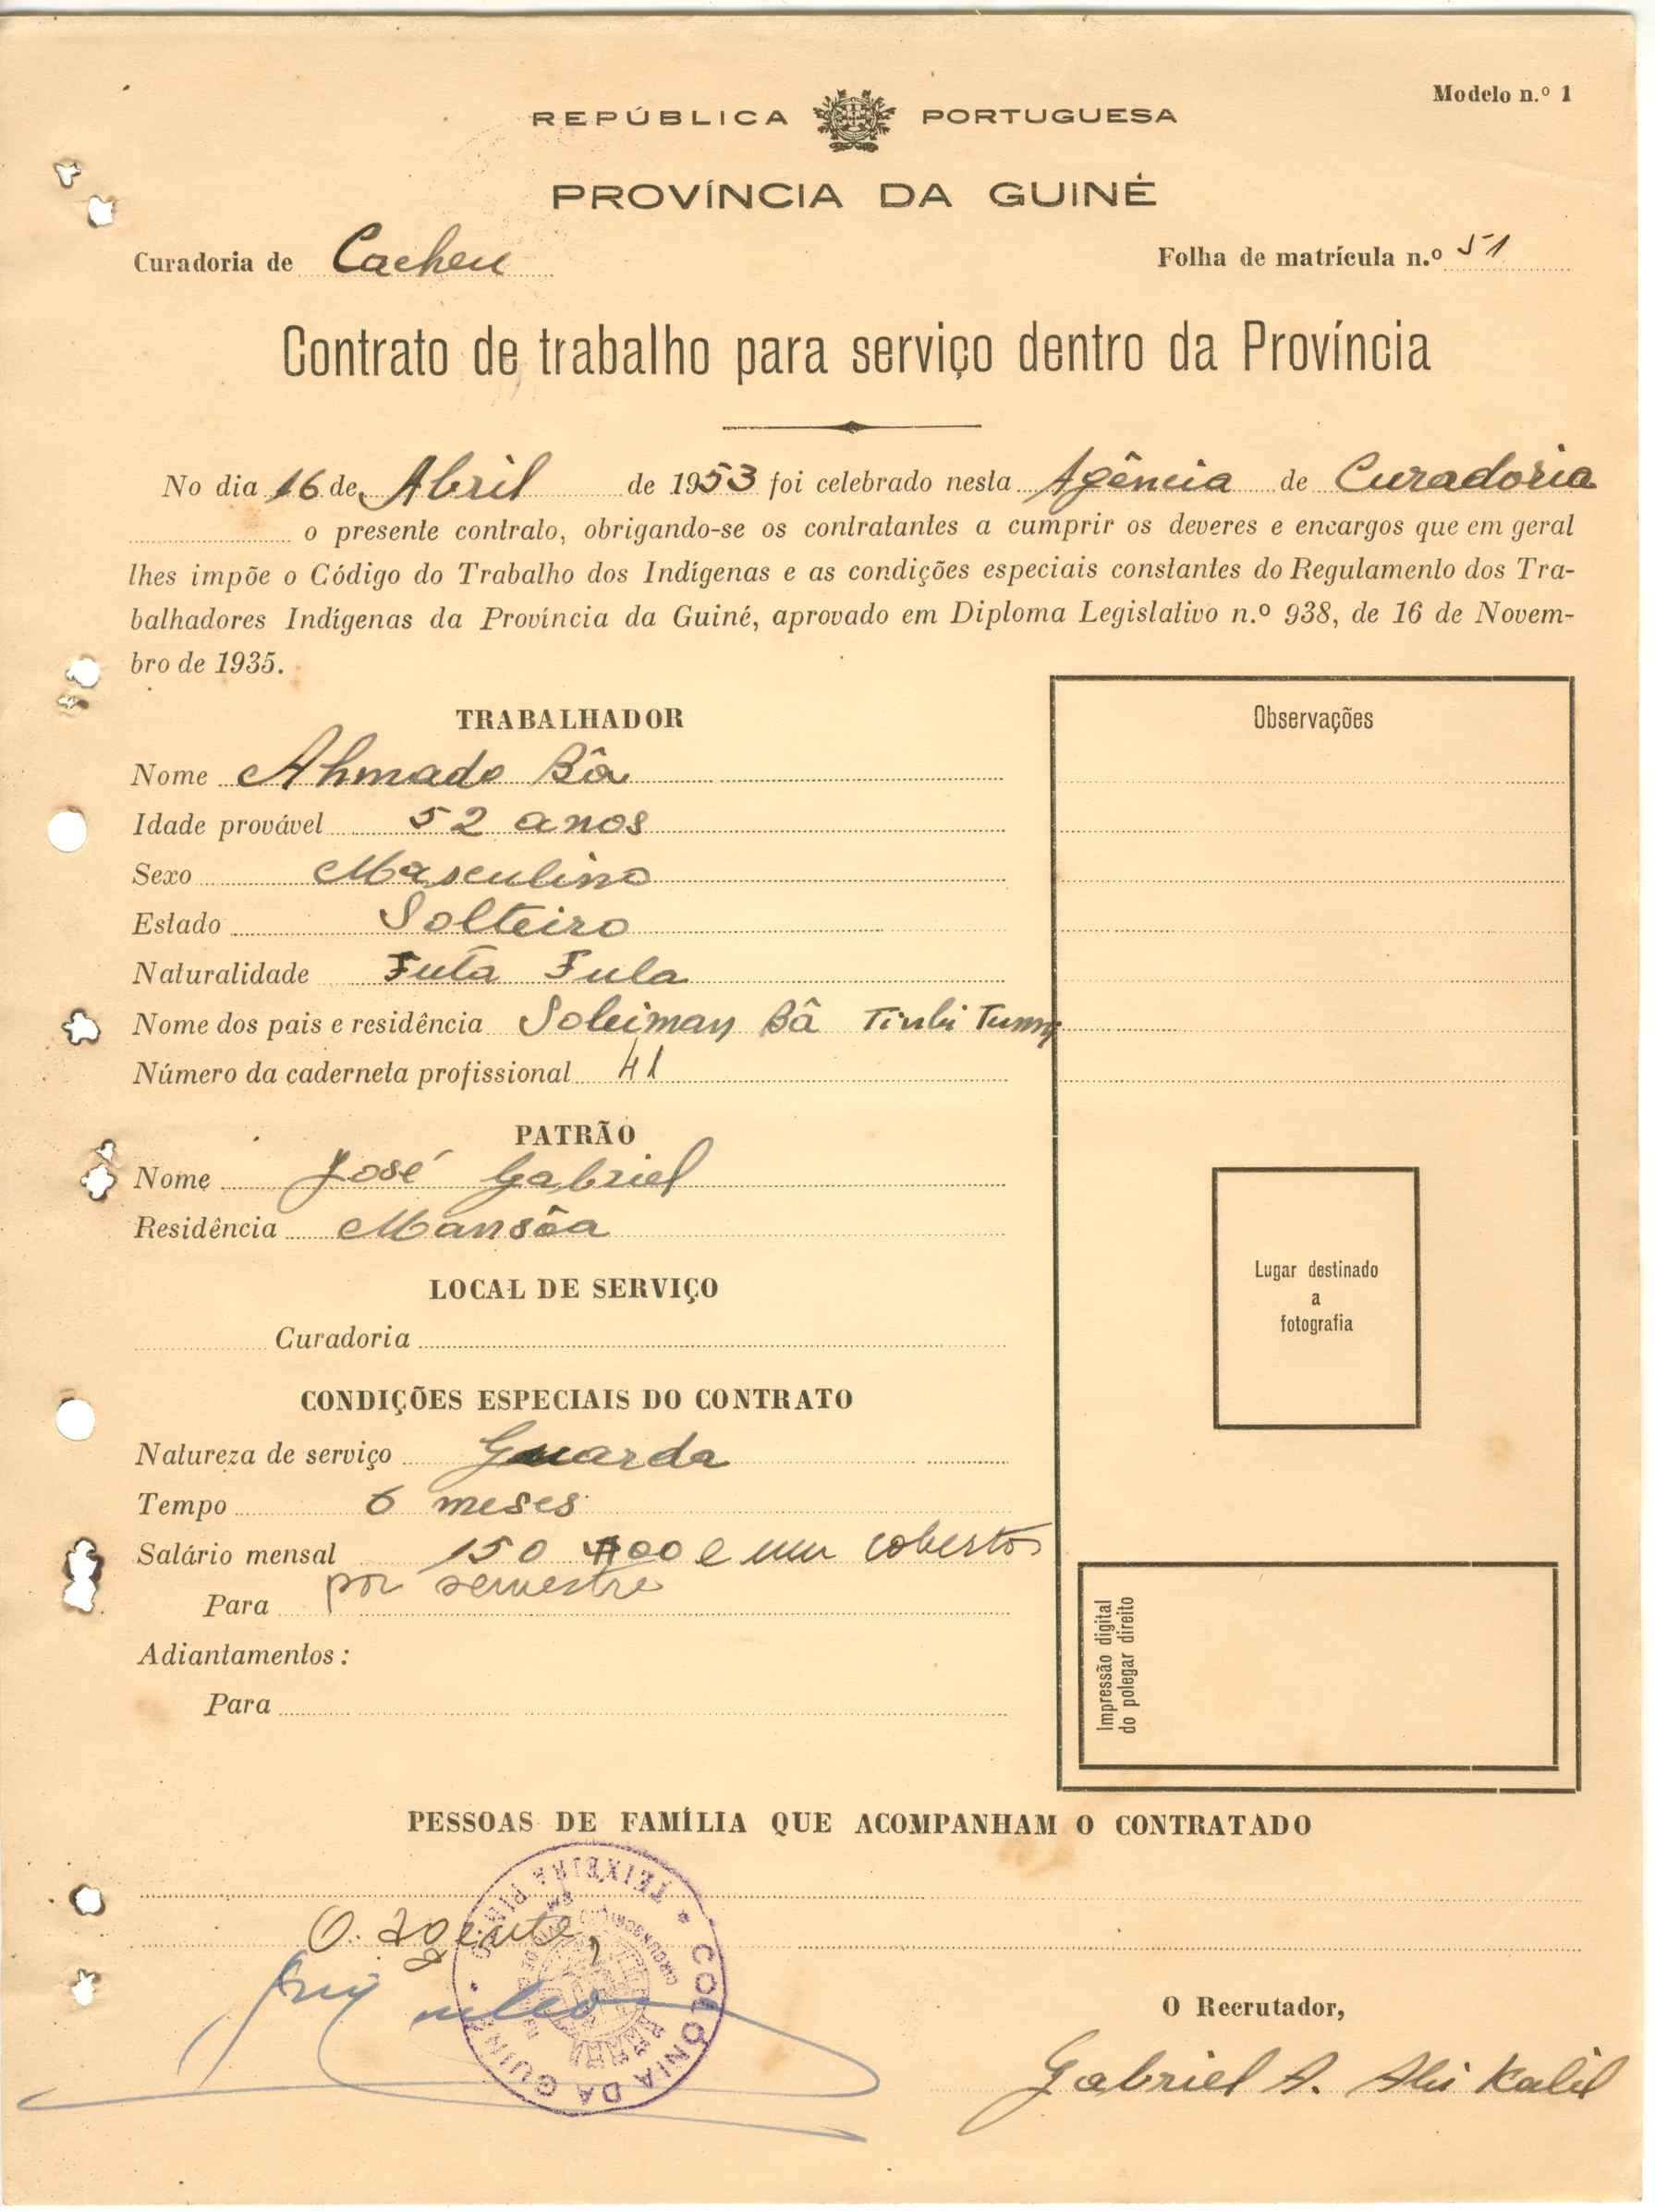 Modelo n.º 1
REPÚBLICA PORTUGUESA
PROVÍNCIA DA GUINÉ
Curadoria de Cacheu
Folha de matrícula n.º 51
Contrato de trabalho para serviço dentro da Província
No dia 16 de Abril de 1953 foi celebrado nesta Agência de Curadoria
o presente contrato, obrigando-se os contratantes a cumprir os deveres e encargos que em geral
lhes impõe o Código do Trabalho dos Indígenas e as condições especiais constantes do Regulamento dos Tra-
balhadores Indígenas da Província da Guiné, aprovado em Diploma Legislativo n.º 938, de 16 de Novem-
bro de 1935.
TRABALHADOR
Nome Ahmado Bâ
Idade provável 52 anos
Sexo Masculino
Estado Solteiro
Naturalidade Futa Fula
Nome dos pais e residência Soleiman Bâ
Número da caderneta profissional 41
PATRÃO
Nome José Gabriel
Residência Mansôa
LOCAL DE SERVIÇO
Curadoria
CONDIÇÕES ESPECIAIS DO CONTRATO
Natureza de serviço Guarda
Tempo 6 meses
Salário mensal 150$00 e um cobertor
por semestre
Para
Adiantamentos:
Para
Observações
Lugar destinado
a
fotografia
Impressão digital
do polegar direito
PESSOAS DE FAMÍLIA QUE ACOMPANHAM O CONTRATADO
O agente,
COLÓNIA DA GUINÉ
TEIXEIRA PINTO
O Recrutador,
Gabriel A. Ali Kalil